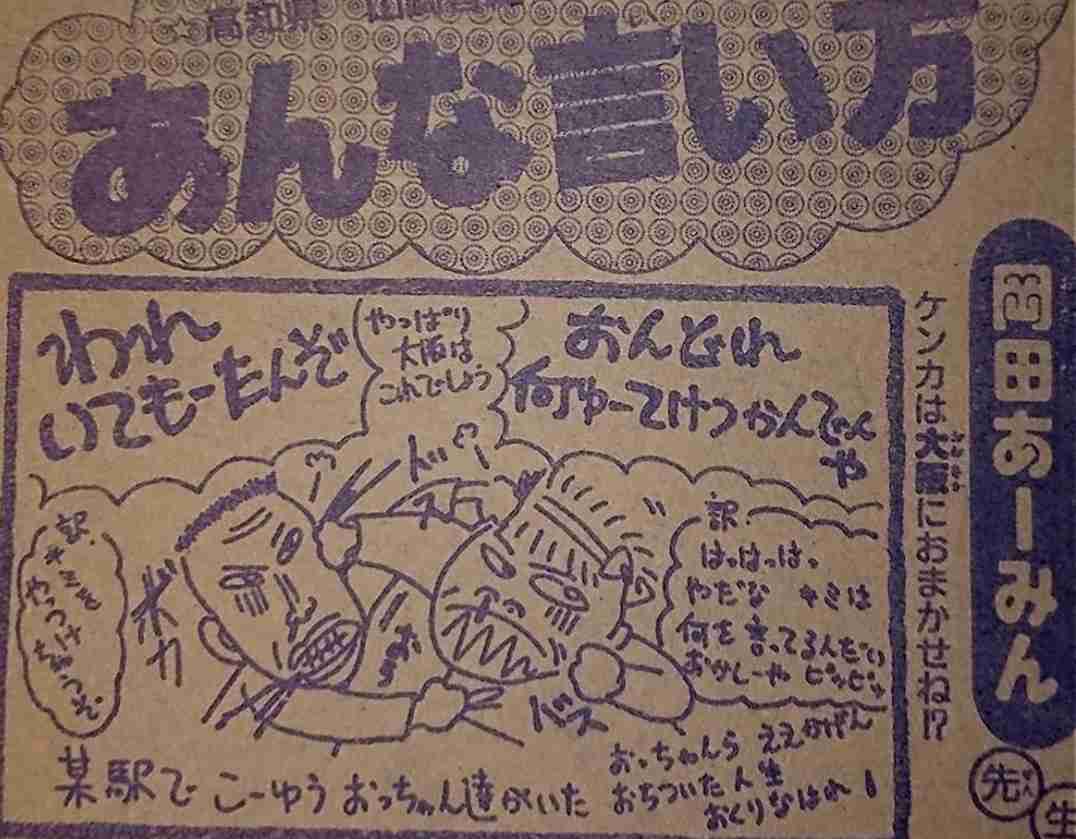 高知県
あんな言い方
岡田あーみん
先生
ケンカは大阪におまかせね!?
おんどれ
何ゆーてけつかんでんや
やっぱり
大阪は
これでしょう
われ
いてもーたんぞ
ドカ
ボカ
ドス
訳
はっはっは、
やだな キミは
何を言ってるんだい
おかしーや ピッピッ
訳
キミを
やっつけ
ちゃうぞ
某駅で こーゆう おっちゃん達がいた
おっちゃんら ええかげん
おちついた人生
おくりなはれ!